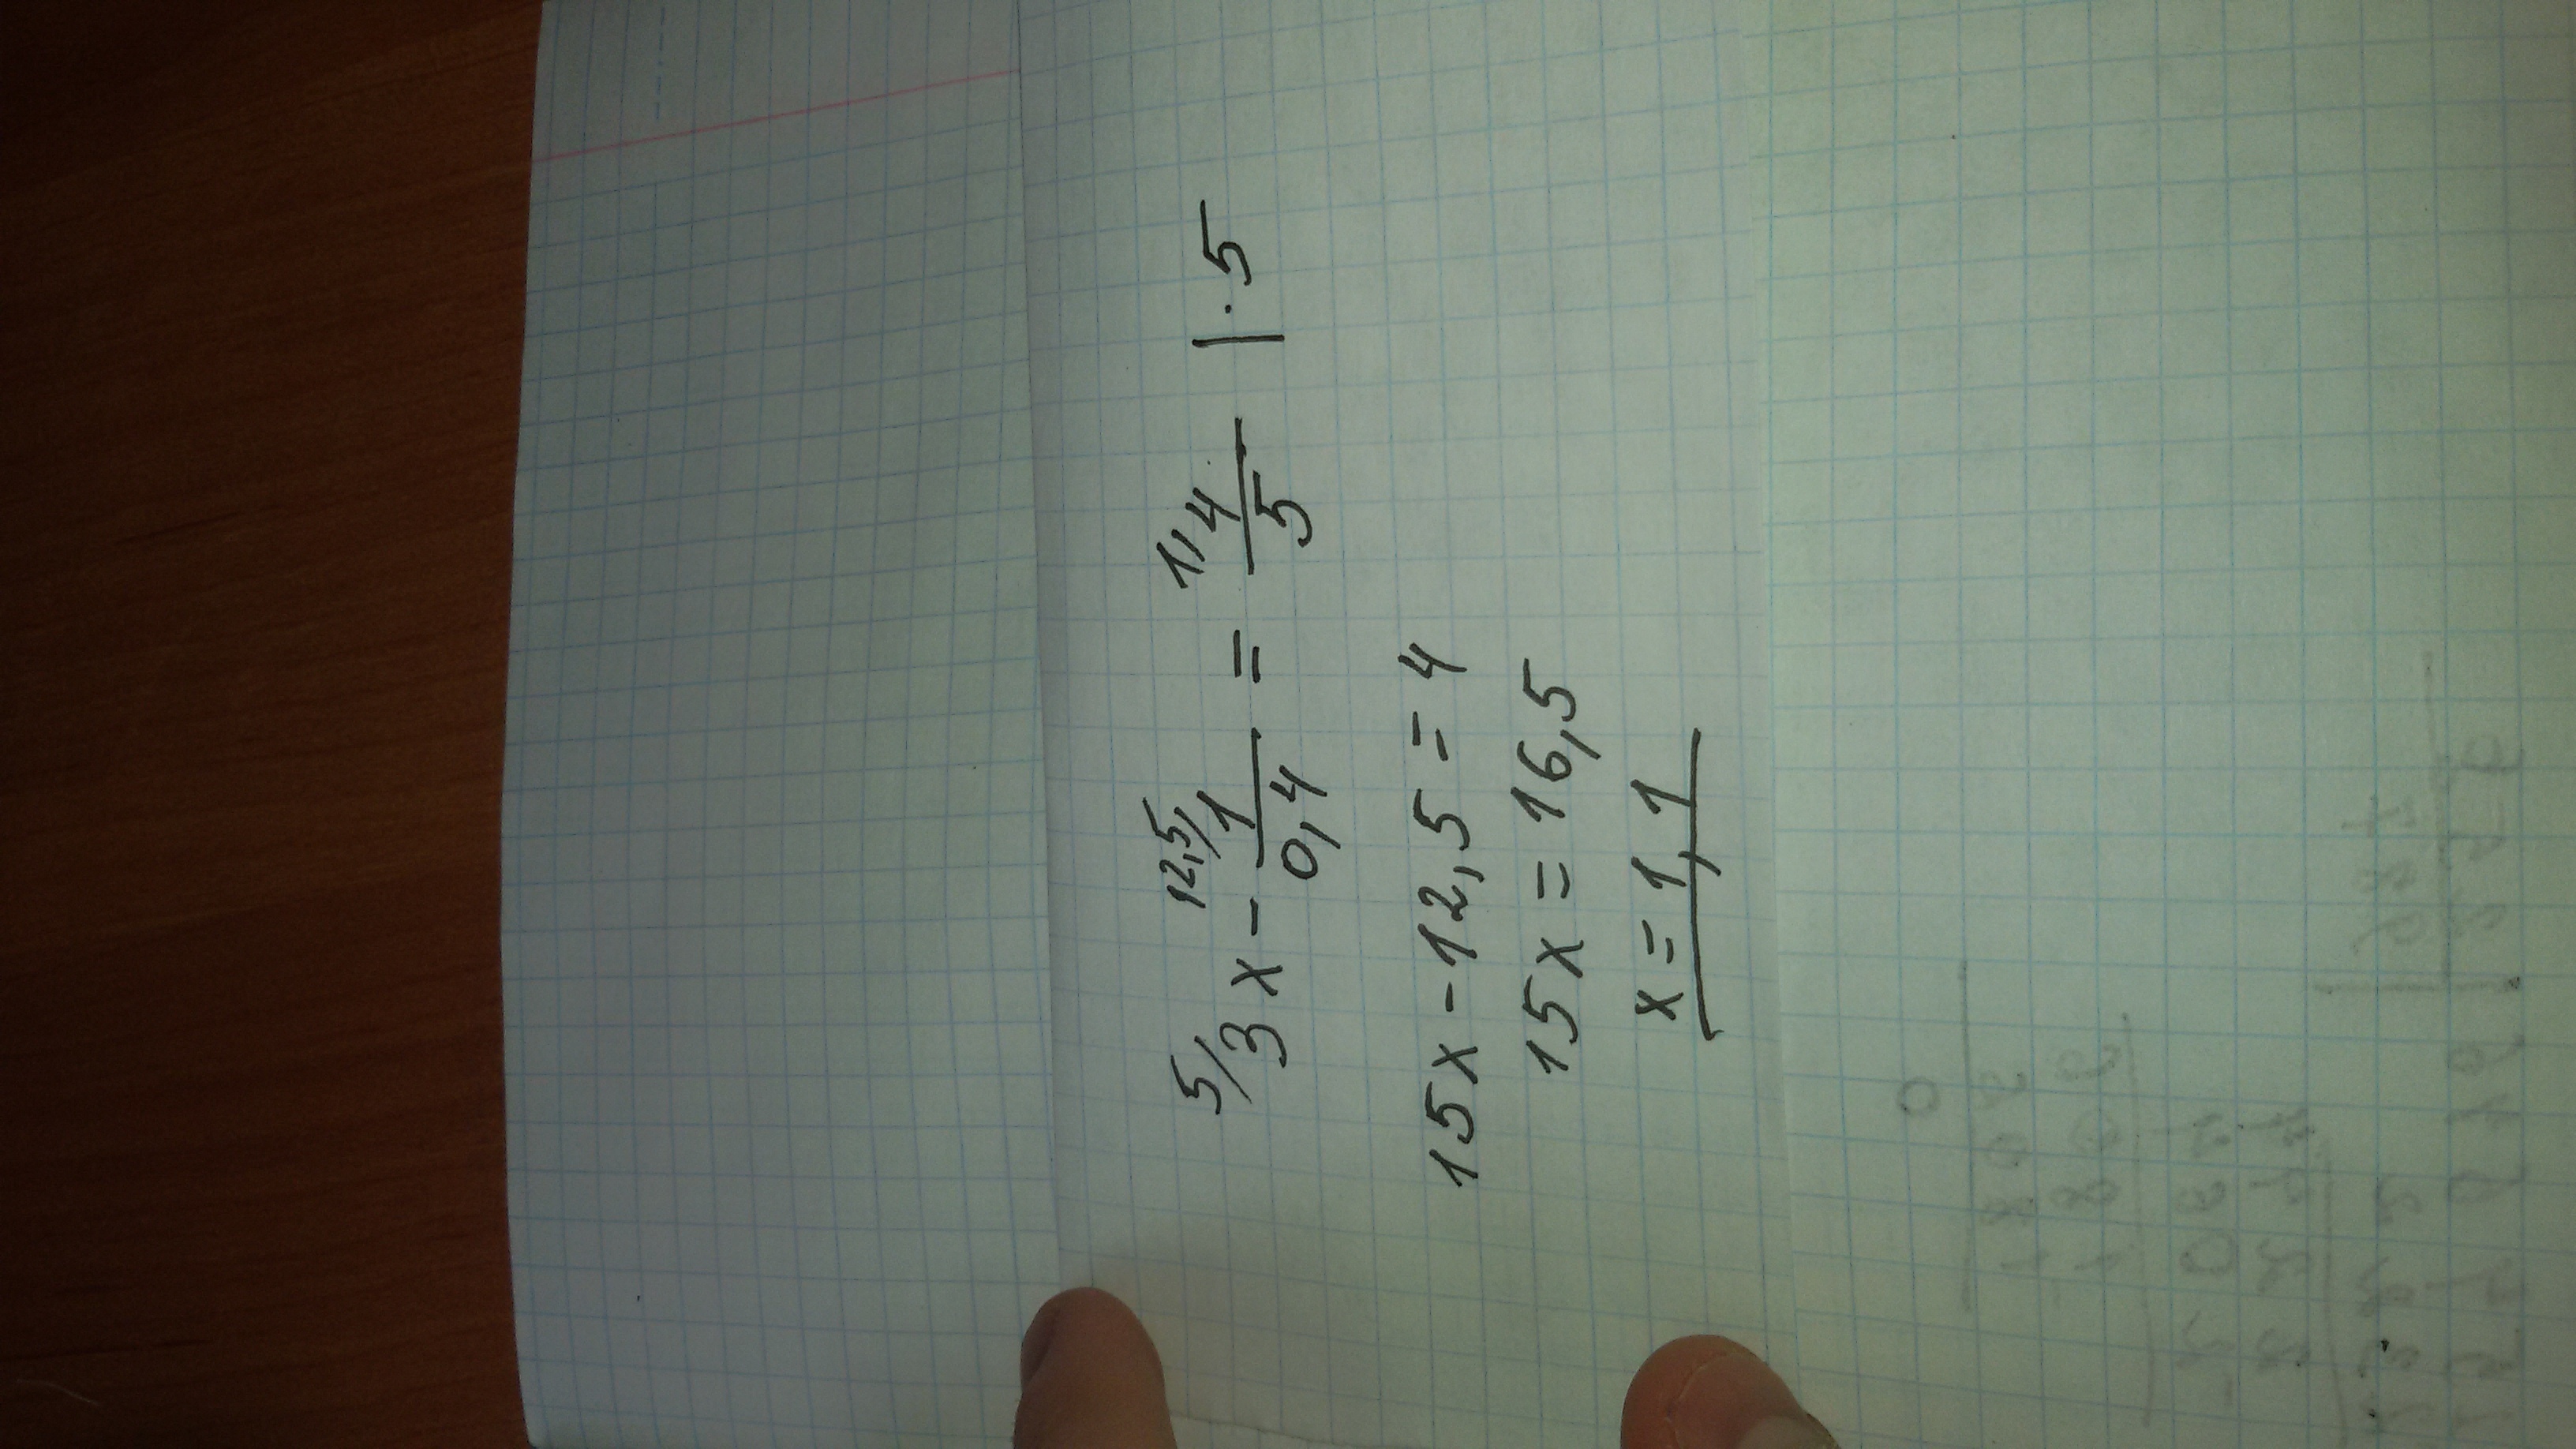 5/3x - 12,5/1/0,4 = 1/4/5 | · 5
15x - 12,5 = 4
15x = 16,5
x = 1,1